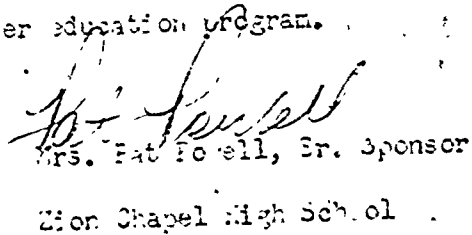 er education program.
Pat Powell
Mrs. Pat Powell, Sr. Sponsor
Zion Chapel High School